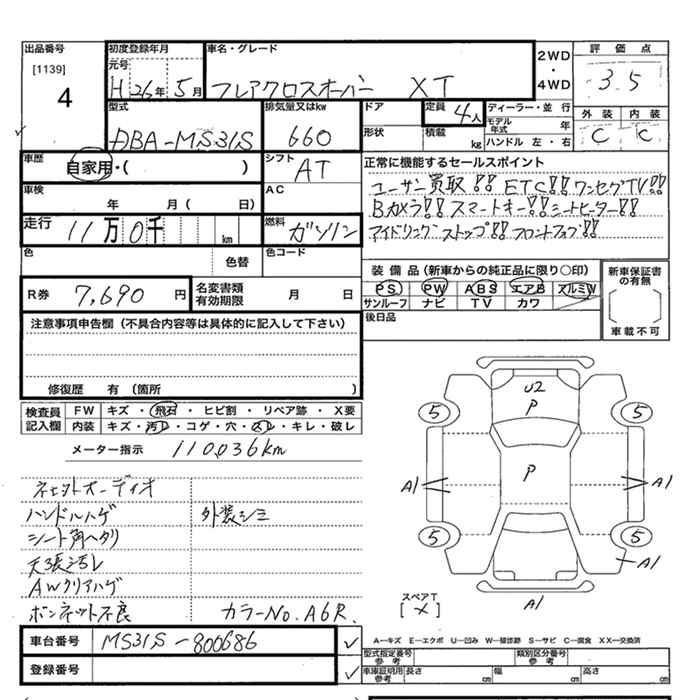 出品番号 初度登録年月 車名・グレード 2WD・4WD 評価点
[1139] 元号 H26年5月 フレアクロスオーバー XT 3.5
4
型式 排気量又はkw ドア 定員 4人 ディーラー・並行 外装 内装
DBA-MS31S 660 形状 積載 kg モデル年式 年 C C
ハンドル 左・右
車歴 自家用・( ) シフト AT 正常に機能するセールスポイント
車検 年 月( 日) AC ユーザー買取!! ETC!! ワンセグTV!!
走行 11万0千 km 燃料 ガソリン Bカメラ!! スマートキー!! シートヒーター!!
アイドリングストップ!! フロントフォグ!!
色 色替 色コード
装備品(新車からの純正品に限り○印) 新車保証書の有無
R券 7,690円 名変書類有効期限 月 日 PS PW ABS エアB アルミW
サンルーフ ナビ TV カワ
車載不可
注意事項申告欄(不具合内容等は具体的に記入して下さい) 後日品
修復歴 有(箇所 )
検査員記入欄 FW キズ・飛石・ヒビ割・リペア跡・X要
内装 キズ・汚レ・コゲ・穴・スレ・キレ・破レ
メーター指示 110,036km
U2
P
5 5
P
A1 A1
5 5
A1
A1
ネェットオーディオ
ハンドルハゲ 外装シミ
シート角ヘタリ
天張汚レ
AWクリアハゲ
ボンネット不良 カラーNo. A6R
スペアT
[ メ ]
車台番号 MS31S-800686
A―キズ E―エクボ U―凹み W―補修跡 S―サビ C―腐食 XX―交換済
登録番号
型式指定番号 参考 類別区分番号 参考
車庫証明用 参考 長さ cm 幅 cm 高さ cm